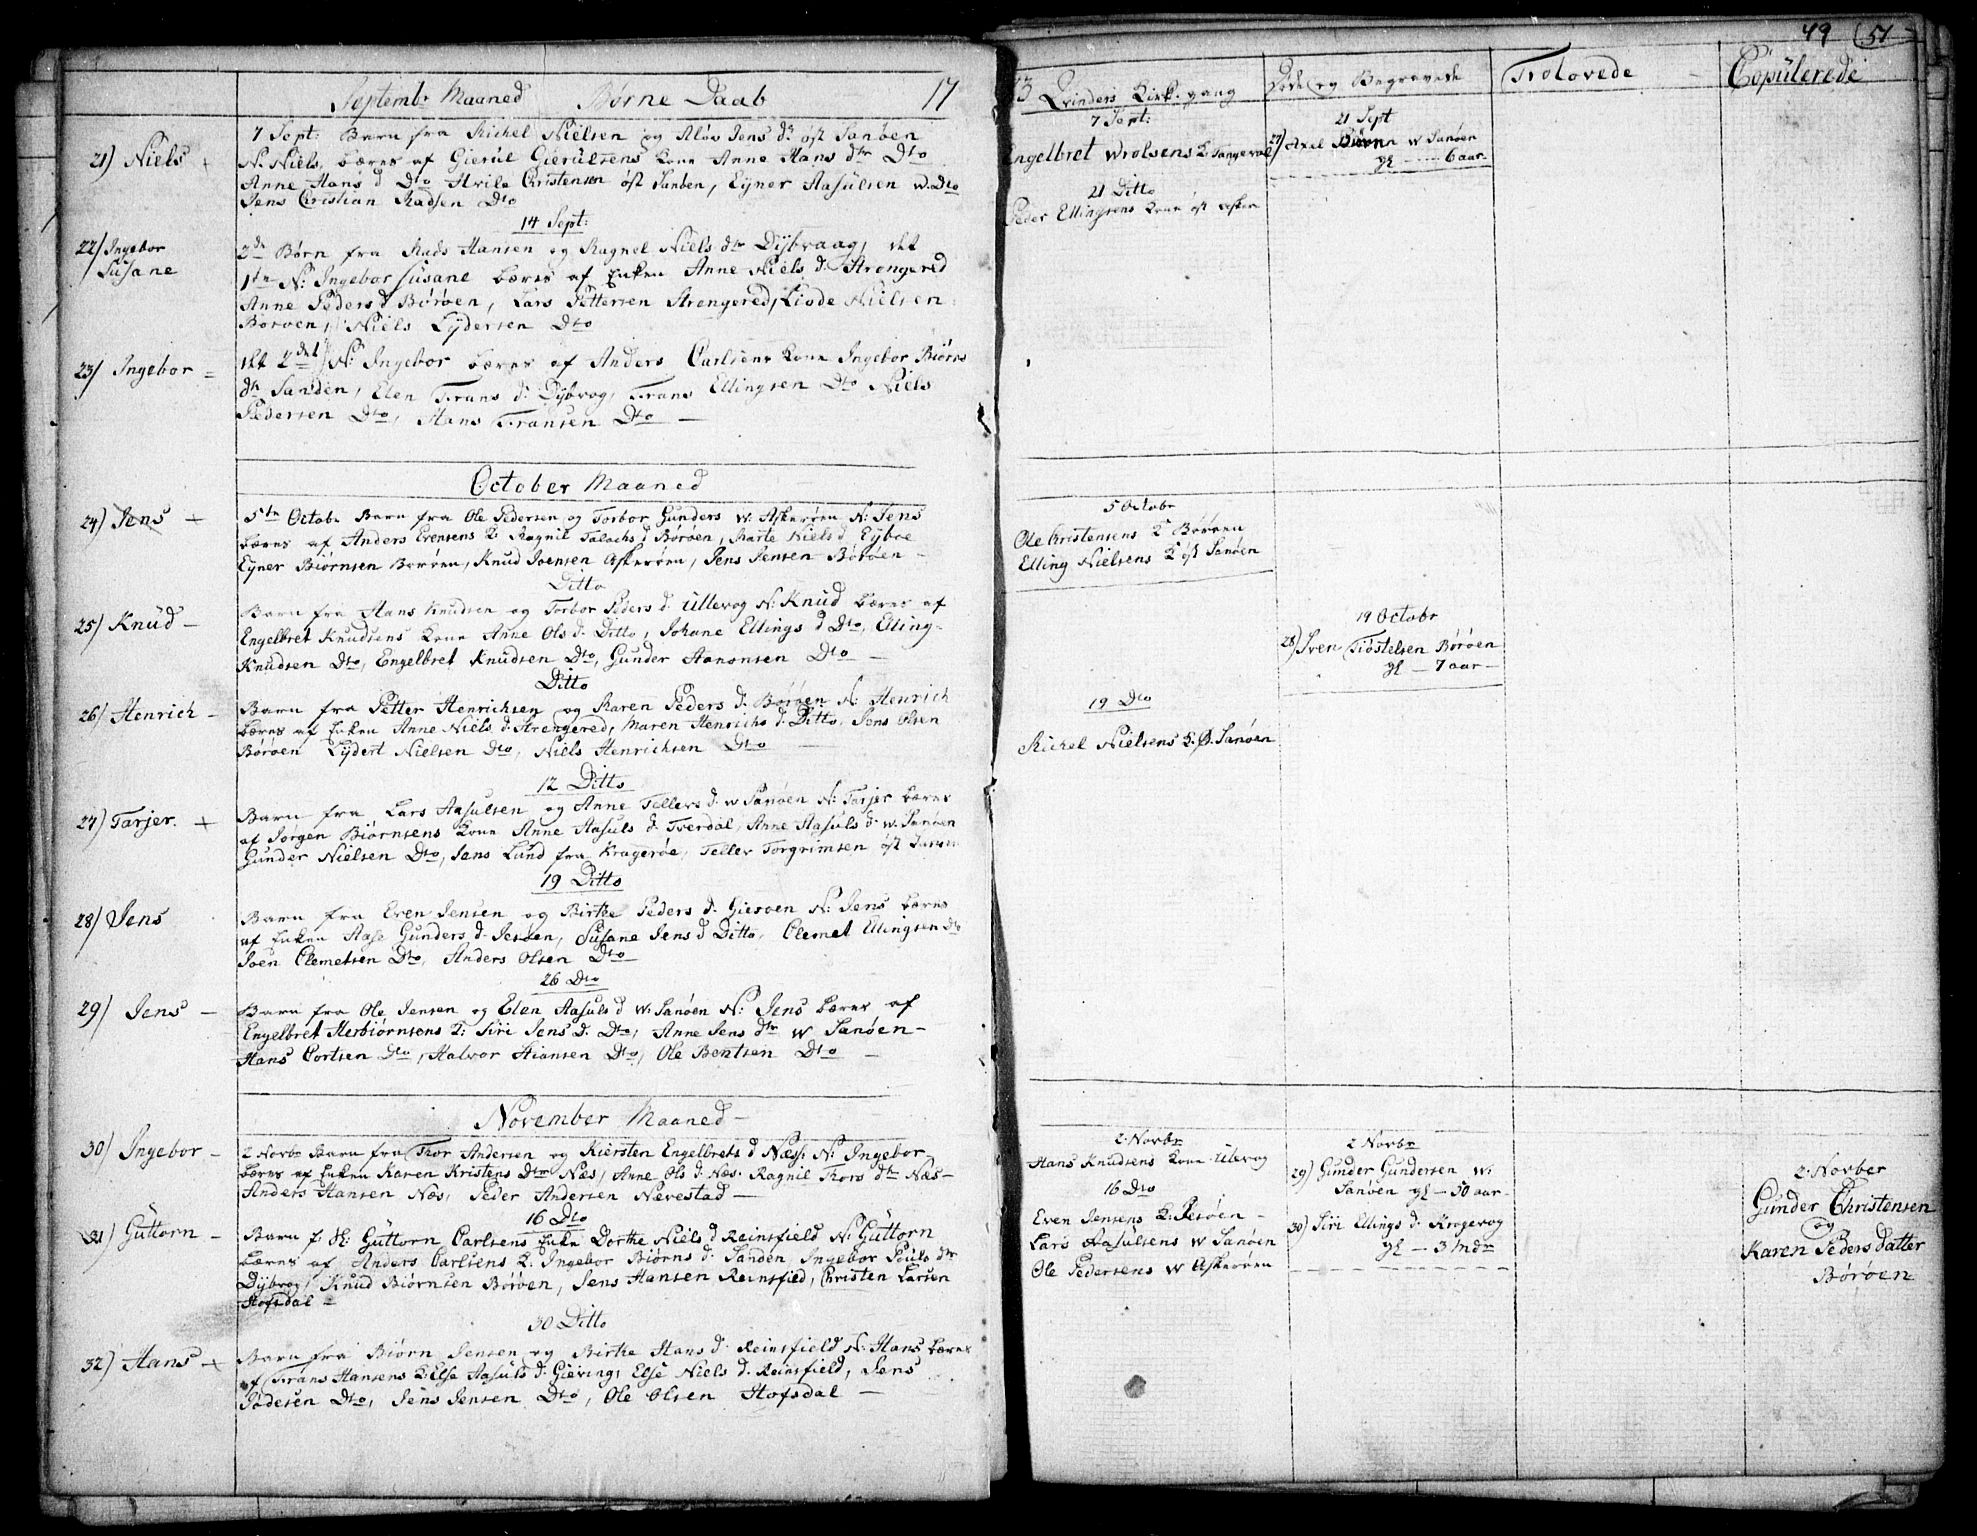 Septembr Maaned Børne Daab 17
7 Sept: Barn fra Michel Nielsen og Aløv Jens d: øst Sanøen
21) Niels +
N: Niels, bæres af Gierul Gierulsens Kone Anne Hans dtr Dto
Anne Hans d Dto Hvile Christensen øst Sanøen, Eyner Aasulsen w. Dto
Jens Christian Madsen Dto
14 Sept:
22) Ingebor Susane
2de Børn fra Mads Hansen og Magnel Niels dtr Dybvaag, det
1ste N: Ingebor Susane bæres af Enken Anne Niels d: Strengered
Anne Peders d Børøen, Lars Pettersen Strengered, Liode Nielsen
Borøen, Niels Lydersen Dto
23) Ingebor =
det 2det N: Ingebor bæres af Anders Carlsens Kone Ingebor Biørns
dtr Sandøn, Elen Frans d: Dybvog, Frans Ellingsen Dto Niels
Pedersen Dto, Hans Fransen Dto —
October Maaned
24) Jens +
5te Octobr Barn fra Ole Pedersen og Torbor Gunders w: Askerøen N: Jens
bæres af Anders Evensens K: Ragnil Talachs d Børøen, Marte Niels d Eyboe
Eyner Biørnsen Børøen, Knud Joensen Askerøen, Jens Jensen Børøen —
Ditto
25) Knud —
Barn fra Hans Knudsen og Torbor Peders d: Ullevog N: Knud bæres af
Engelbret Knudsens Kone Anne Ols d: Ditto, Johane Ellings d Dto, Elling
Knudsen Dto, Engelbret Knudsen Dto, Gunder Aanonsen Dto —
Ditto
26) Henrich —
Barn fra Petter Henrichsen og Maren Peders d: Børøen N: Henrich
bæres af Enken Anne Niels d: Strengered, Maren Henrichs d: Ditto, Jens Olsen
Børøen Lydert Nielsen Dto, Niels Henrichsen Dto —
12 Ditto
27) Tarjer. +
Barn fra Lars Aasulsen og Anne Tellers d: w Sanøen N: Tarjer bæres
af Jørgen Biørnsens Kone Anne Aasuls d: Tverdal, Anne Aasuls d: w. Sanøen
Gunder Nielsen Dto, Jens Lund fra Kragerøe, Teller Torgrimsen øst Sanøen
19 Ditto
28) Jens
Barn fra Even Jensen og Birthe Peders d: Giesøen N: Jens bæres
af Enken Aase Gunders d: Jesøen, Susane Jens d Ditto, Clemet Ellingsen Dto
Joen Clemetsen Dto, Anders Olsen Dto
26 Dto
29) Jens —
Barn fra Ole Jensen og Elen Aasuls d w: Sanøen N: Jens bæres af
Engelbret Herbiørnsens K: Siri Jens d: Dto, Anne Jens dtr w Sanøen —
Hans Cortsen Dto, Halvor Stiansen Dto, Ole Bentsen Dto —
November Maaned —
30) Ingebor —
2 Novbr Barn fra Thor Andersen og Kiersten Engelbrets d Næss N: Ingebor
bæres af Enken Karen Kristens Dtr Næs, Anne Ols d: Næs. Ragnil Thors dtr Næs —
Anders Hansen Næs, Peder Andersen Nævestad —
16 Dto
31) Guttorn —
Barn f: Guttorn Carlsens Enke Dorthe Niels d Reinsfield N: Guttorn
bæres af Anders Carlsens K: Ingebor Biørns d: Sandøn Ingebor Pouls dtr
Dybvog, Knud Biørnsen Børøen, Jens Hansen Reinsfied, Christen Larsen
Hofsdal —
30 Ditto
32) Hans +
Barn fra Biørn Jensen og Birthe Hans d: Reinsfield N: Hans bæres
af Frans Hansens K: Else Aasuls d: Gieving, Else Niels d: Reinsfield, Jens
Pedesen Dto, Jens Jensen Dto, Ole Olsen Hofsdal —
49 51
73 Qvinders Kirkegang
7 Sept:
Engelbret Wrolsens K Tangevald
21 Ditto
Peder Ellingsens Kone øst Asker
5 Octobr
Ole Christensens K Børøen
Elling Nielsens K øst Sanøen
19 Dto
Michel Nielsens K. Ø. Sanøen
2 Novbr
Hans Knudsens Kone Ulevog
16 Dto
Even Jensens K: Jesøen —
Lars Aasulsens w Sanøen
Ole Pedersens w Askerøen
Døde og Begravede
21 Sept
27) Axel Biørn w Sanøen
gl — 6 aar
19 Octobr
28) Sven Tiøstelsen Børøen
gl — 7 aar —
2 Novbr
29) Gunder Gundersen w:
Sanøen gl — 50 aar —
30) Siri Ellings d: Krogevog
gl — 3 Mdr
Trolovede —
Copulerede
2 Novber
Gunder Christensen
og
Karen Pedersdatter
Børøen